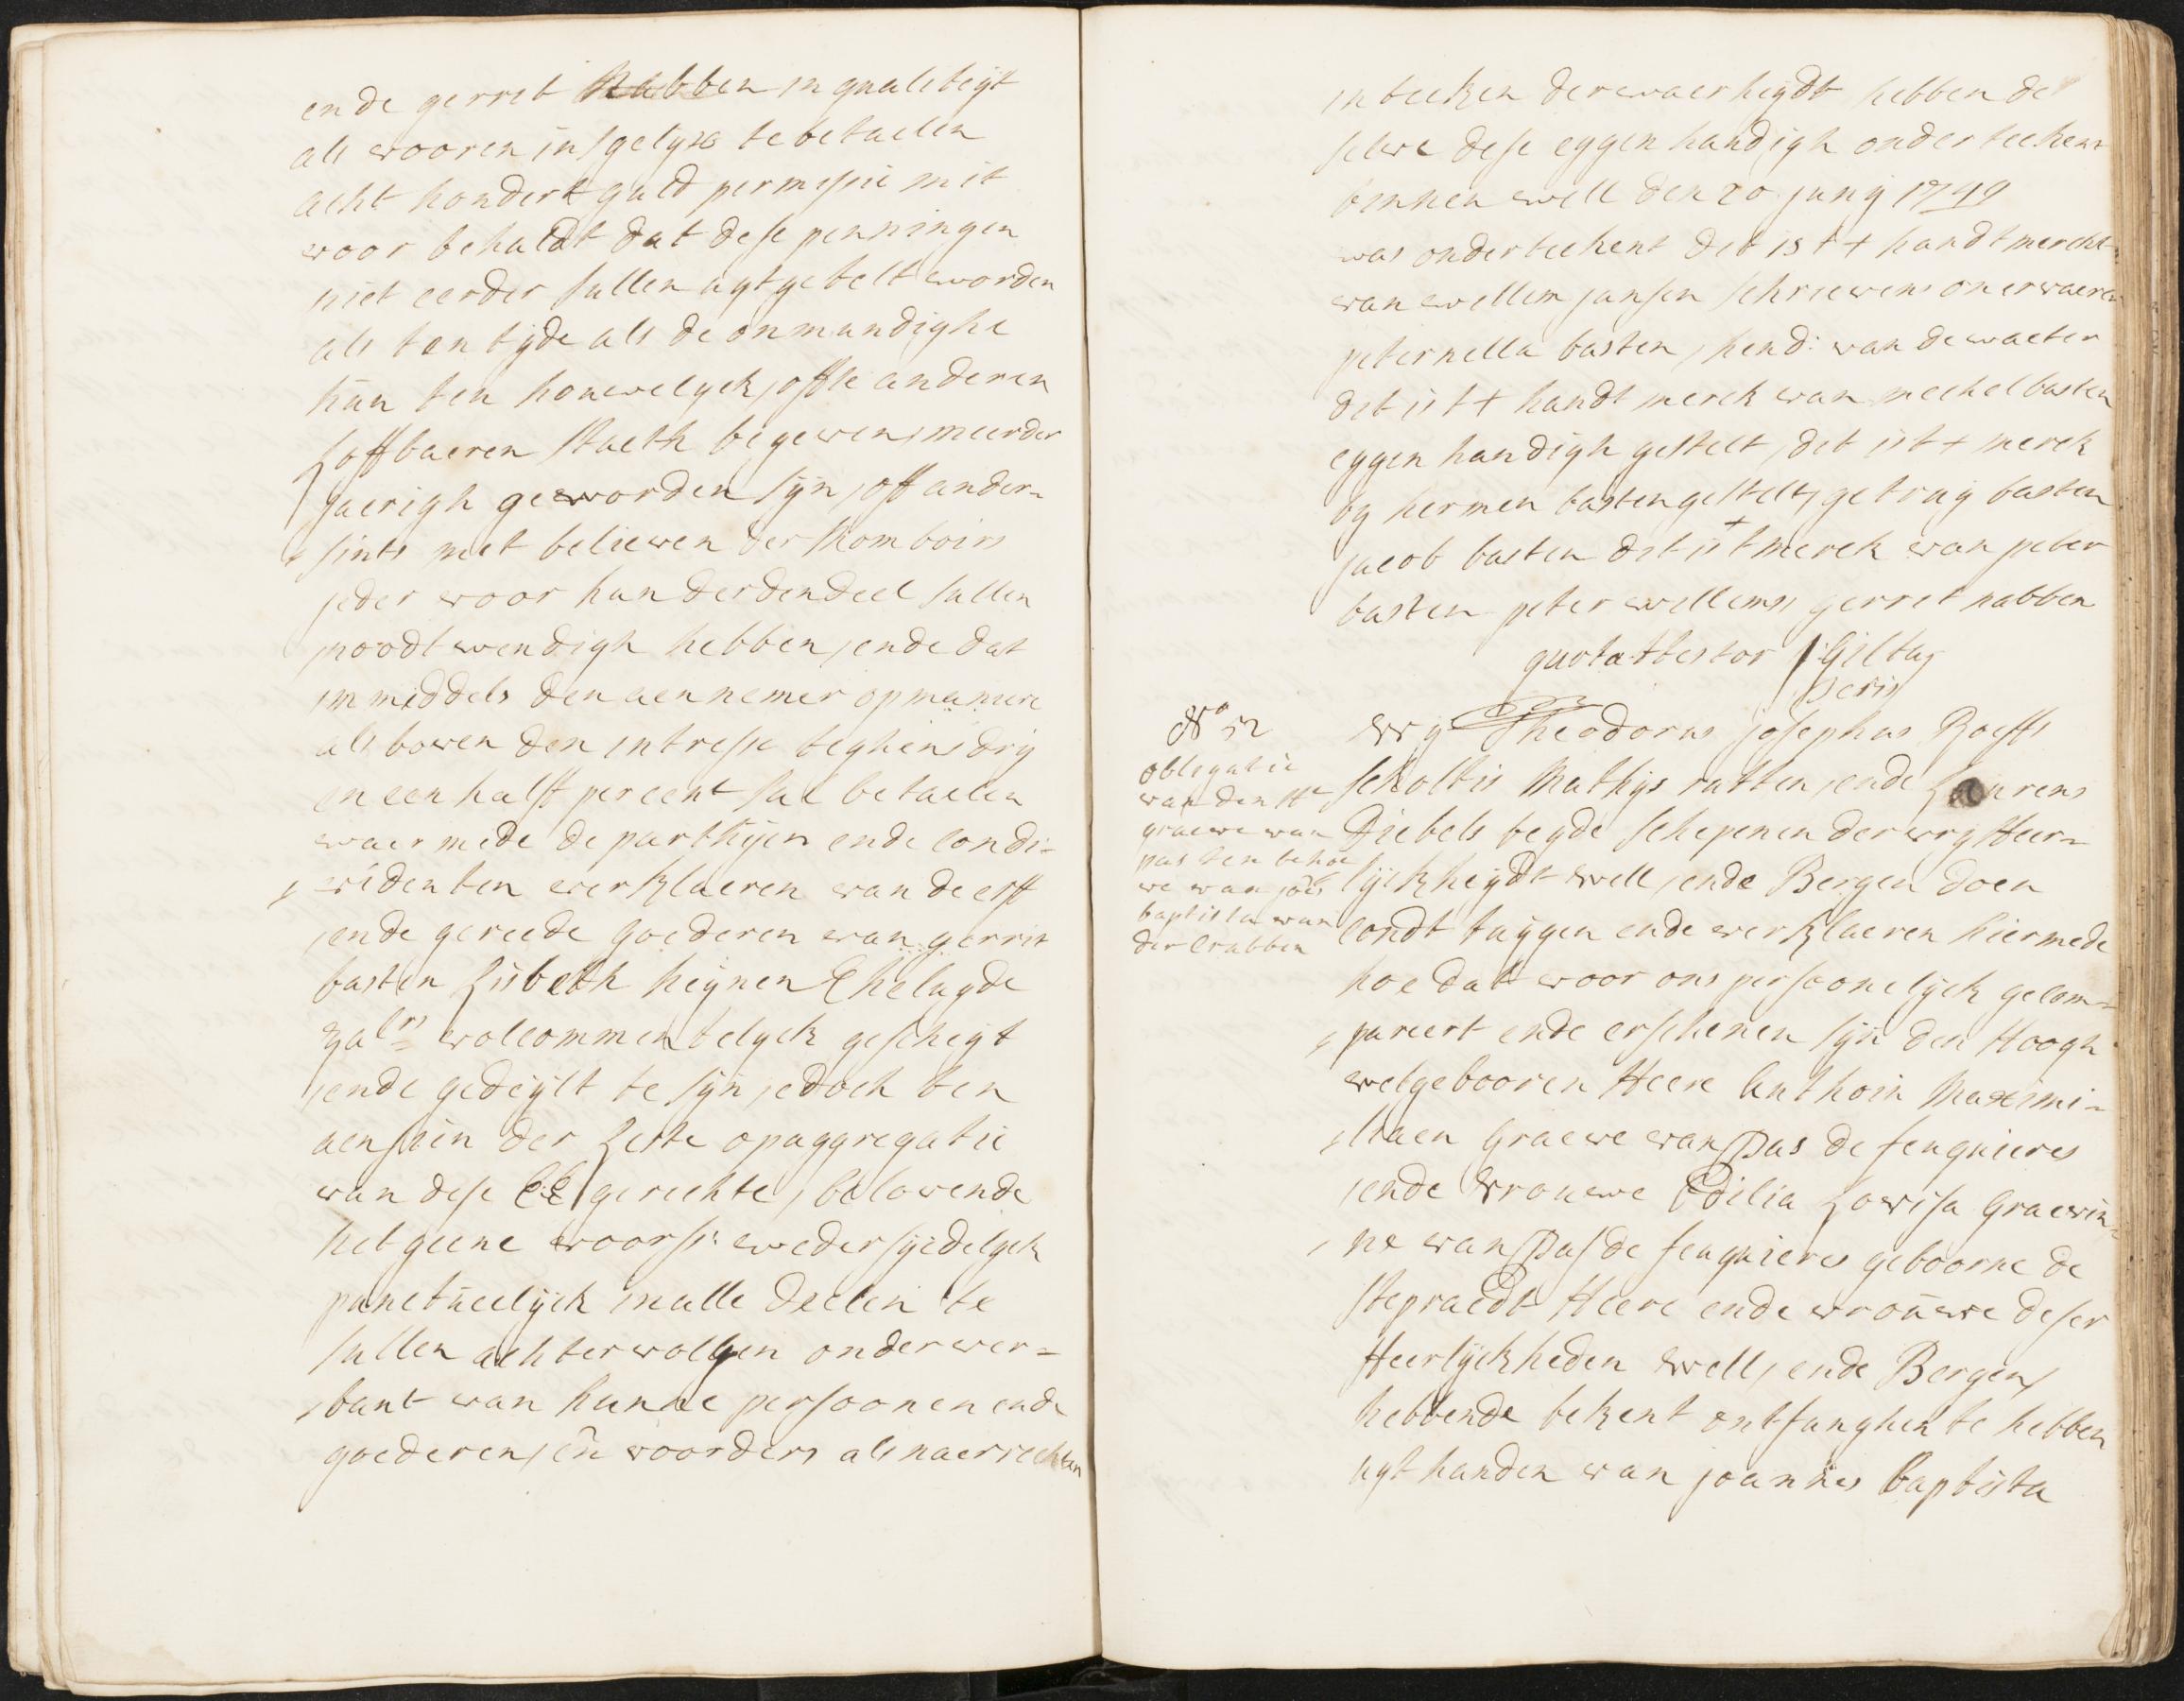 ende gerret Nabben in qualiteijt
als vooren insgelyx te betaelen
acht hondert guld permissie mit
voor behaldt dat dese penningen
niet eerder sullen uytgetelt worden
als ten tijde als de onmundighe
hun ten houwelyck, offte anderen
Loffbaeren staeth begeven, meerder
Jaerigh geworden sijn, off ander-
sints met believen der Momboirs
jeder voor hun derdendeel sullen
noodtwendigh hebben, ende dat
immiddels den aennemer op maniere
als boven den intresse teghens drij
en een halff percent sal betaelen
waermede de partheijen ende condi-
videnten verklaeren van de erff
ende gereede goederen van gerrit
basten Lisbeth heijnen Eheluyde
zalrs volcommentelyck gescheijt
ende gedeijlt te sijn, edoch ten
aensien der Leste op aggregatie
van dese EE gerechte, belovende
het geene voors: wedersijdelyck
punctueelijck in alle deelen te
sullen achtervolgen onder ver-
bant van hunne persoonen ende
goederen, en voorders als naer rechten
in teeken der waerheijdt hebben de
selve dese eygenhandigh onderteekent
binnen well den 20 junij 1749
was onderteekent dit is t + handtmerck
van willem jansen schrievens onervaeren
peternella basten, hend: van de water
dit is t + handt merck van mechel basten
eygen handigh gestelt, dit is t + merck
by hermen basten gestelt, getruij basten
jacob basten dit is t + merck van peter
basten peter willems gerret nabben
quod attestor J Giltaij
Secris
No 52
obligatie
van den H
graeve van
pas ten behoe
ve van jois
baptista van
der Crabben
Wy Theodorus josephus Roeffs
scholtis Mathijs rutten, ende Laurens
Diebels beyde schepenen der vry Heer-
lijckheijdt Well, ende Bergen doen
condt tuygen ende verklaeren hiermede
hoe dat voor ons persoonelijck gecom-
pareert ende erschenen sijn den Hoogh
welgebooren Heere Anthoin Maximi-
liaen Graeve van Pas de feuquieres
ende Vrouwe Odilia Lovisa Graevin-
ne van Pas de feuquieres geboorne de
Stepraedt Heere ende vrouwe deser
Heerlijckheden Well, ende Bergen,
hebbende bekent ontfanghen te hebben
uyt handen van joannes baptista